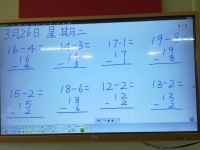 3月26日 星期二
16-4= 14-3= 17-1= 19-8=
16 14 17 19
-4 -3 -1 -8
15-2= 18-6= 12-2= 13-2=
15 18 12 13
-2 -6 -2 -2